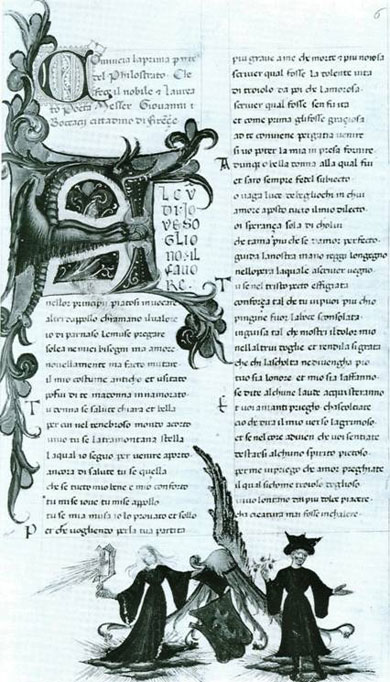 Comincia la prima parte
del Philostrato. Che
fece il nobile & laurea
to Poeta Messer Giovanni
Boccacii cittadino di
ALCU
DI JO
VE SO
GLIO
NO IL
FAUO
RE
nelloro principii piatosi invocare
altri dappollo chiamano il ualore
io di parnaso le muse pregare
solea ne miei bisogni ma amore
nouellamente ma facto mutare
il mio costume antiche et usitato
po fui di te madonna innamorato
Tu donna se salute chiara et bella
per cui nel tenebroso mondo acorto
uiuo tu se la tramontana stella
la qual io seguo per uenire aporto
ancora di salute tu se quella
che se tucto mio bene e mio conforto
tu mi se ioue tu mise appollo
tu se mia musa io lo prouato et sello
Per che uogliendo per la tua partita
6
piu graue ame che morte & piu noiosa
scriuer qual fosse la dolente uita
di troiolo da poi che lamorosa
scriuer qual fosse sen fu ita
et come prima gli fosse gratiosa
ad te conuiene per gratia uenire
si uo poter la mia in presa fornire
Adunqu o bella donna alla qual fui
et saro sempre fedel subiecto
o uaga luce de begliochi in chui
amore a posto tucto il mio dilecto
oi speranza sola di cholui
che tama piu che se damor perfecto
guida la nostra mano reggi longegno
nellopera laquale ascriuer uegno
Tu se nel tristo pecto effigiata
con forza tal che tu ui puoi piu chio
pingine fuor la uoce sconsolata
in guisa tal che mostri il dolor mio
nell altrui doglie et rendila si grata
che chi lascholta ne diuengha pio
tuo sia lonore et mio sia laffanno
se dite alchune laude acquisteranno
Et uoi amanti priegho chascoltiate
cio che dira il mio uerso lagrimoso
et se nel core aduien che uoi sentiate
destarsi alchuno spirito pietoso
per me ui priego che amor preghiate
il qual sichome troiolo doglioso
uiuo lontano dal piu dolce piacere
cha creatura mai fosse in chalere